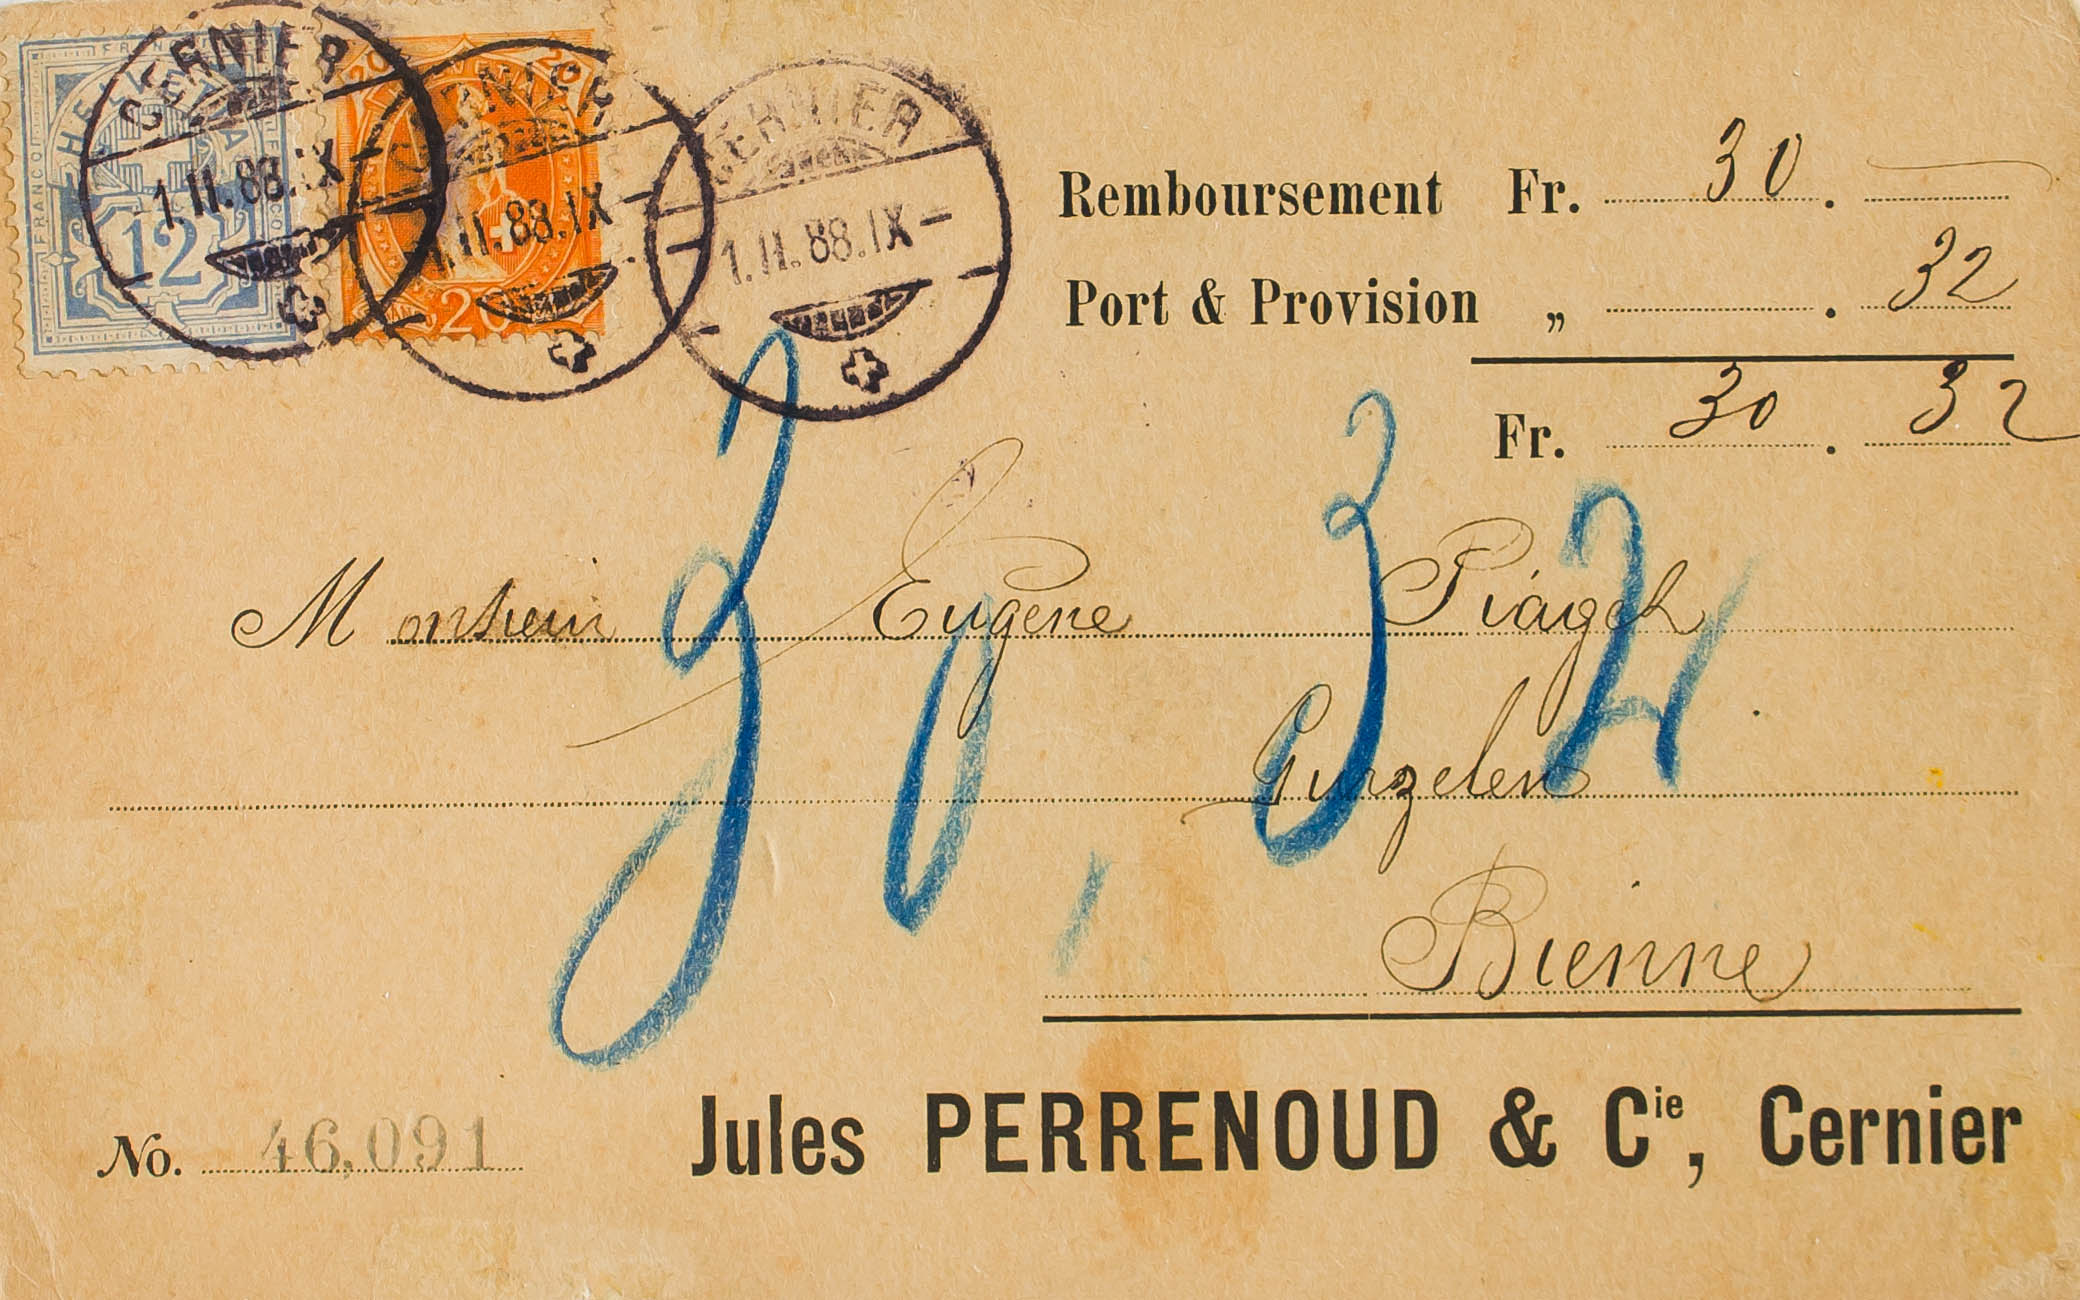 FRANCO HELVETIA FRANCO 12
20 HELVETIA 20 FRANCO 20
CERNIER 1.II.88.IX-
CERNIER 1.II.88.IX-
CERNIER 1.II.88.IX-
Remboursement Fr. 30. —
Port & Provision „ . 32
Fr. 30. 32
30,32
Monsieur Eugene Piaget
Gurzelen
Bienne
No. 46,091
Jules PERRENOUD & Cie, Cernier